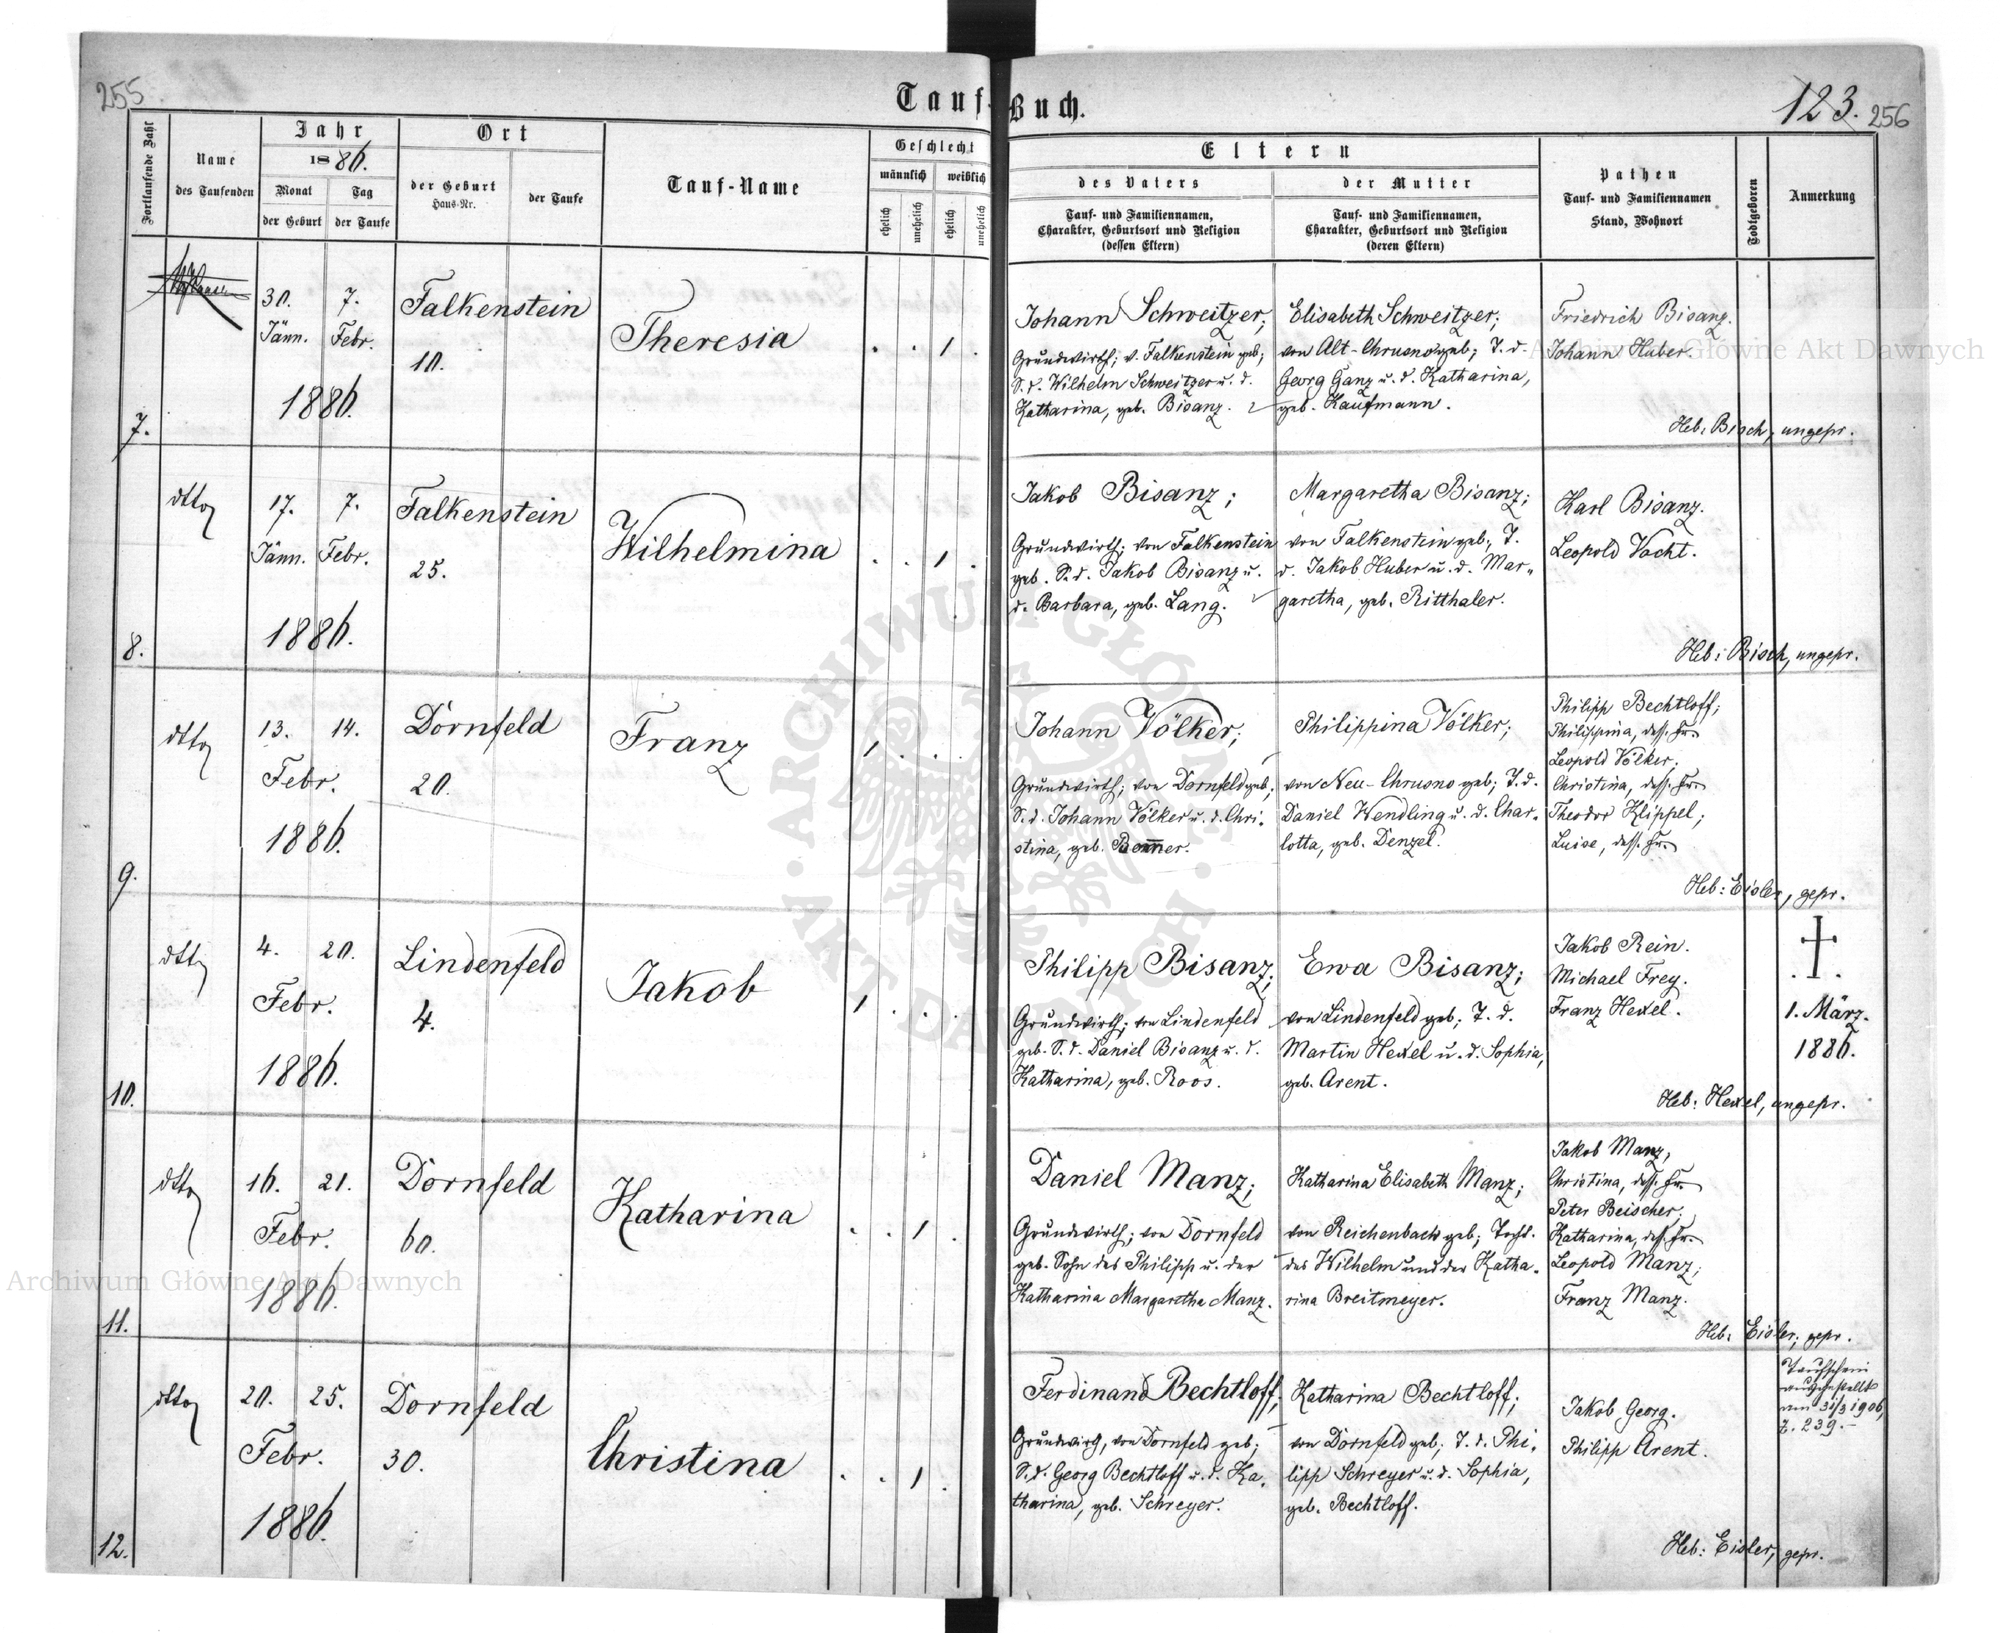 255
Tauf-Buch.
123. 256
Fortlaufende Zahl
Name
des Taufenden
Jahr
1886.
Monat
Tag
der Geburt
der Taufe
Ort
der Geburt
Haus-Nr.
der Taufe
Tauf-Name
Geschlecht
männlich
weiblich
ehelich
unehelich
ehelich
unehelich
Eltern
des Vaters
Tauf- und Familiennamen,
Charakter, Geburtsort und Religion
(dessen Eltern)
der Mutter
Tauf- und Familiennamen,
Charakter, Geburtsort und Religion
(deren Eltern)
Pathen
Tauf- und Familiennamen
Stand, Wohnort
Todtgeboren
Anmerkung
7.
30. 7.
Jänn. Febr.
1886.
Falkenstein
10.
Theresia
. . 1 .
Johann Schweitzer;
Grundwirth; v. Falkenstein geb;
S. d. Wilhelm Schweitzer u. d.
Katharina, geb. Bisanz.
Elisabeth Schweitzer;
von Alt-Chrusno geb; T. d.
Georg Ganz u. d. Katharina,
geb. Kaufmann.
Friedrich Bisanz.
Johann Huber.
Heb: Bisch, ungepr.
8.
dtto
17. 7.
Jänn. Febr.
1886.
Falkenstein
25.
Wilhelmina
. . 1 .
Jakob Bisanz;
Grundwirth; von Falkenstein
geb. S. d. Jakob Bisanz u.
d. Barbara, geb. Lang.
Margaretha Bisanz;
von Falkenstein geb; T.
d. Jakob Huber u. d. Mar-
garetha, geb. Ritthaler.
Karl Bisanz.
Leopold Vocht.
Heb: Bisch, ungepr.
9.
dtto
13. 14.
Febr.
1886.
Dornfeld
20.
Franz
1 . . .
Johann Völker;
Grundwirth; von Dornfeld geb;
S. d. Johann Völker u. d. Chri-
stina, geb.
Philippina Völker;
von Neu-Chrusno geb; T. d.
Daniel Wendling u. d. Char-
lotta, geb. Denzel.
Philipp Bechtloff;
Philippina, dess. Fr.
Leopold Völker;
Christina, dess. Fr.
Theodor Klippel;
Luise, dess. Fr.
Heb: Eisler, gepr.
10.
dtto
4. 20.
Febr.
1886.
Lindenfeld
4.
Jakob
1 . . .
Philipp Bisanz;
Grundwirth; von Lindenfeld
geb. S. d. Daniel Bisanz u. d.
Katharina, geb. Roos.
Ewa Bisanz;
von Lindenfeld geb; T. d.
Martin Hexel u. d. Sophia,
geb. Arent.
Jakob Rein.
Michael Frey.
Franz Hexel.
1. März.
1886.
Heb: Hexel, ungepr.
11.
dtto
16. 21.
Febr.
1886.
Dornfeld
60.
Katharina
. . 1 .
Daniel Manz;
Grundwirth; von Dornfeld
geb. Sohn des Philipp u. der
Katharina Margaretha Manz.
Katharina Elisabeth Manz;
von Reichenbach geb; Tocht.
des Wilhelm und der Katha-
rina Breitmeyer.
Jakob Manz,
Christina, dess. Fr.
Peter Beischer;
Katharina, dess. Fr.
Leopold Manz;
Franz Manz.
Heb: Eisler, gepr.
12.
dtto
20. 25.
Febr.
1886.
Dornfeld
30.
Christina
. . 1 .
Ferdinand Bechtloff;
Grundwirth, von Dornfeld geb;
S. d. Georg Bechtloff u. d. Ka-
tharina, geb. Schreyer.
Katharina Bechtloff;
von Dornfeld geb; T. d. Phi-
lipp Schreyer u. d. Sophia,
geb. Bechtloff.
Jakob Georg.
Philipp Arent.
Taufschein
ausgestellt
am 31/3 1906,
Z. 239.-
Heb: Eisler, gepr.
Archiwum Główne Akt Dawnych
Archiwum Główne Akt Dawnych
ARCHIWUM GŁÓWNE AKT DAWNYCH